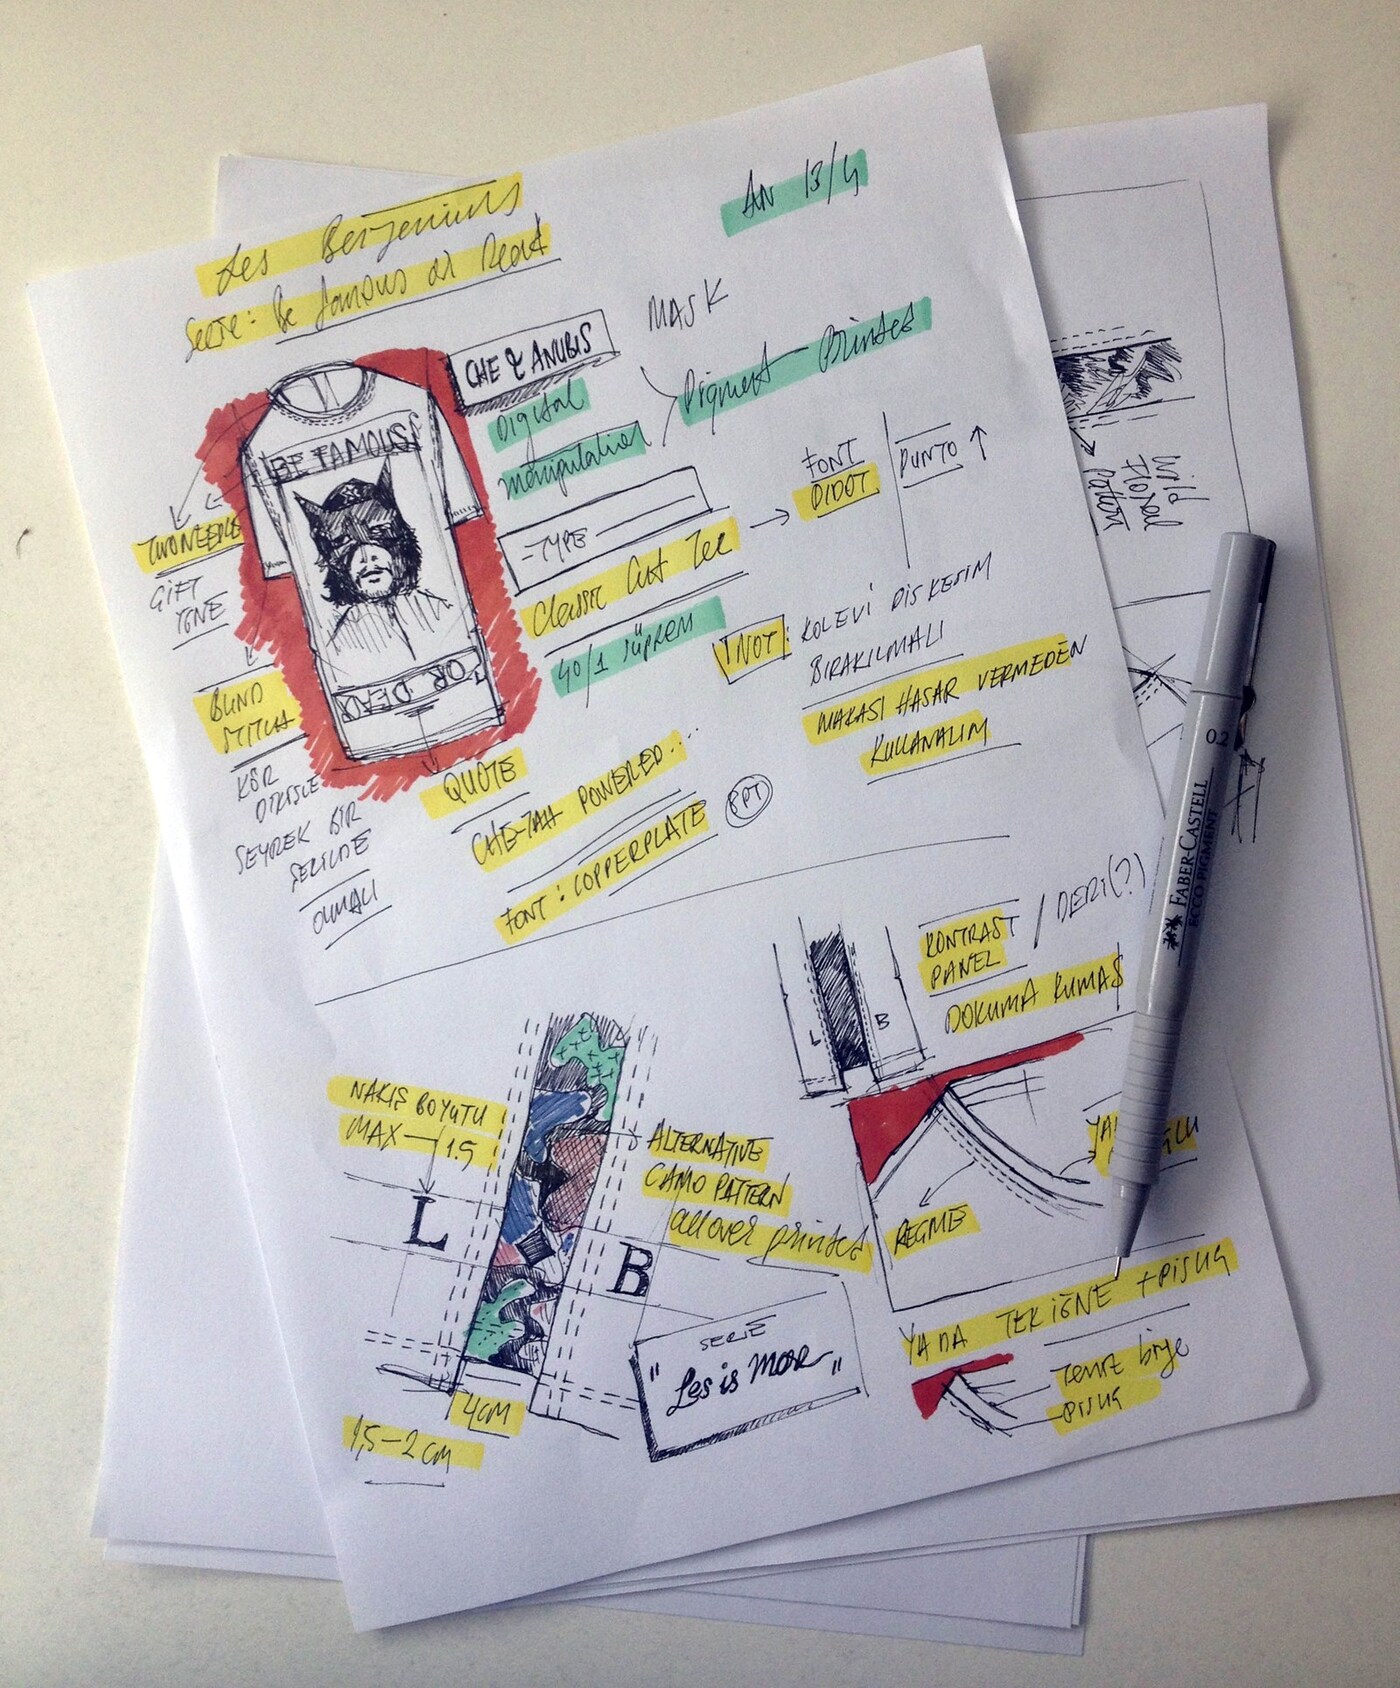 Les Benjamins
Serie: Be famous or Dead
AN 13/4
CHE & ANUBIS
MASK
Digital
manipulation
Pigment Printed
BE FAMOUS
OR DEAD
TWO NEEDLE
ÇİFT
İĞNE
BLIND
STITCH
KÖR
DİKİŞLE
SEYREK BİR
ŞEKİLDE
OLMALI
-TYPE
Classic Cut Tee
40/1 süprem
FONT
DIDOT
PUNTO
!NOT: KOLEVİ DİŞ KESİM
BIRAKILMALI
MAKASI HASAR VERMEDEN
KULLANALIM
QUOTE
CHE-TAH POWERED....
FONT: COPPERPLATE
8PT
KONTRAST / DERİ(?)
PANEL
DOKUMA KUMAŞ
L
B
NAKIŞ BOYUTU
MAX 1.5
L
B
ALTERNATIVE
CAMO PATTERN
allover printed
REGME
YA DA TEK İĞNE + PISLIĞ
biye
4CM
1,5-2 CM
SERIE
"Les is More"
Wild
Floral
Pattern
0.2
FABER-CASTELL
ECCO PIGMENT